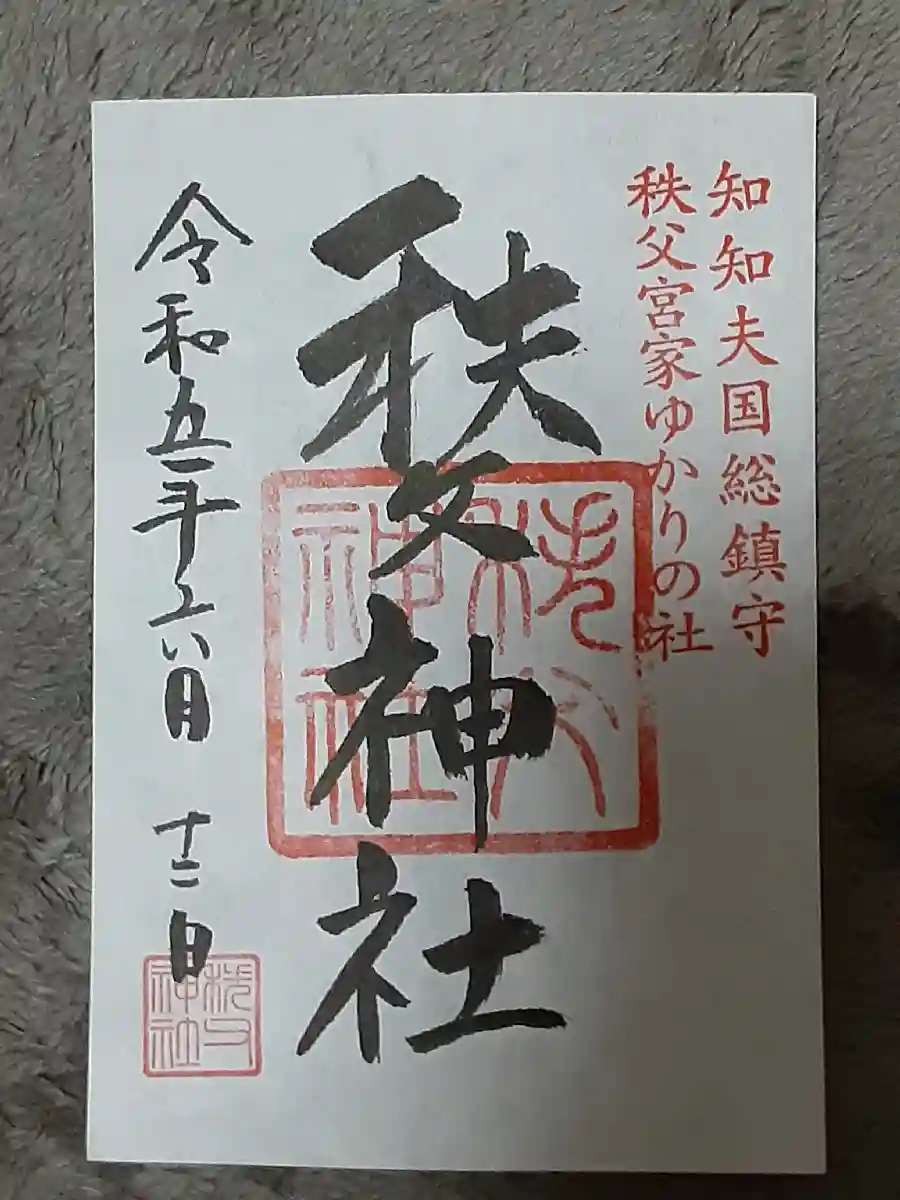 知知夫国総鎮守
秩父宮家ゆかりの社
秩父神社
秩父神社
令和五年六月十二日
秩父神社